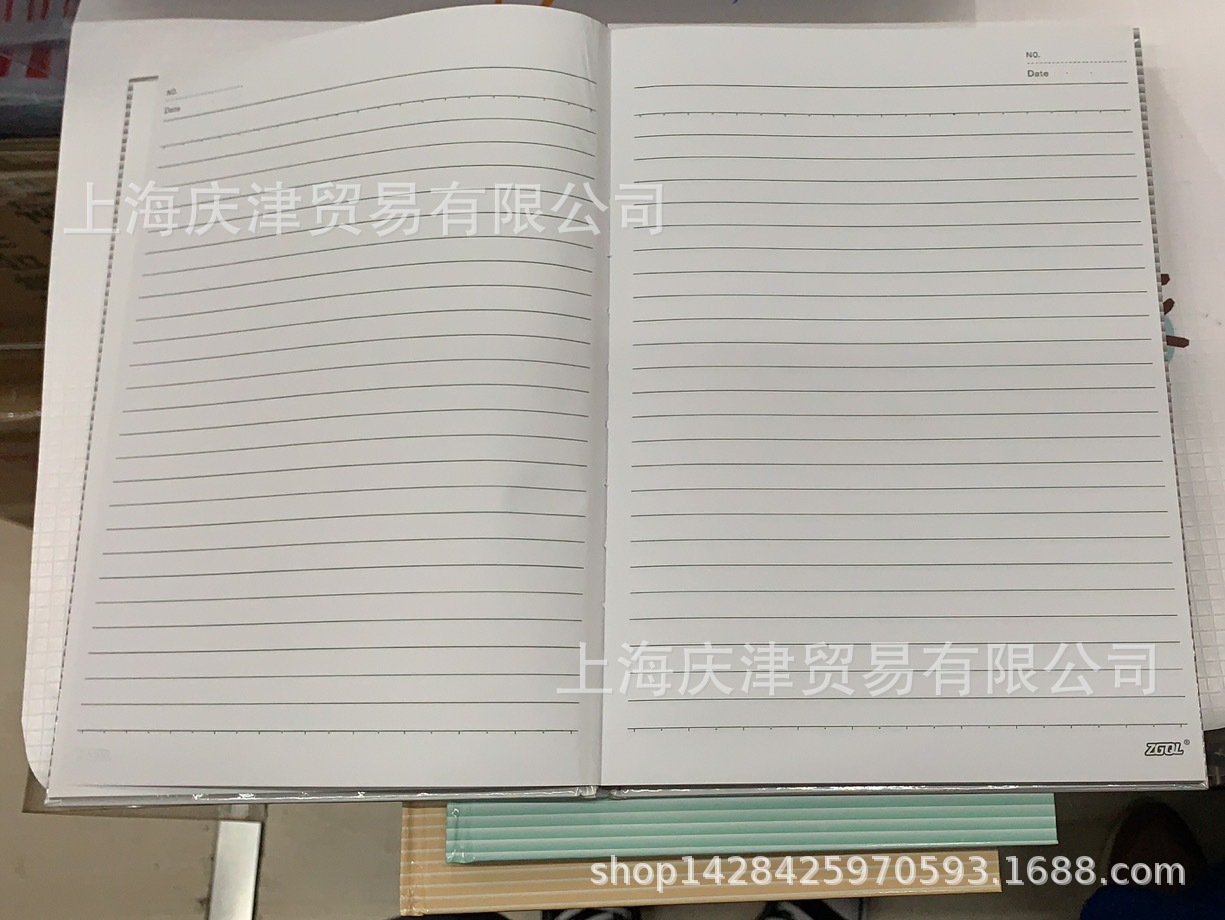 NO.
Date
NO.
Date
上海庆津贸易有限公司
上海庆津贸易有限公司
ZGQL®
shop1428425970593.1688.com